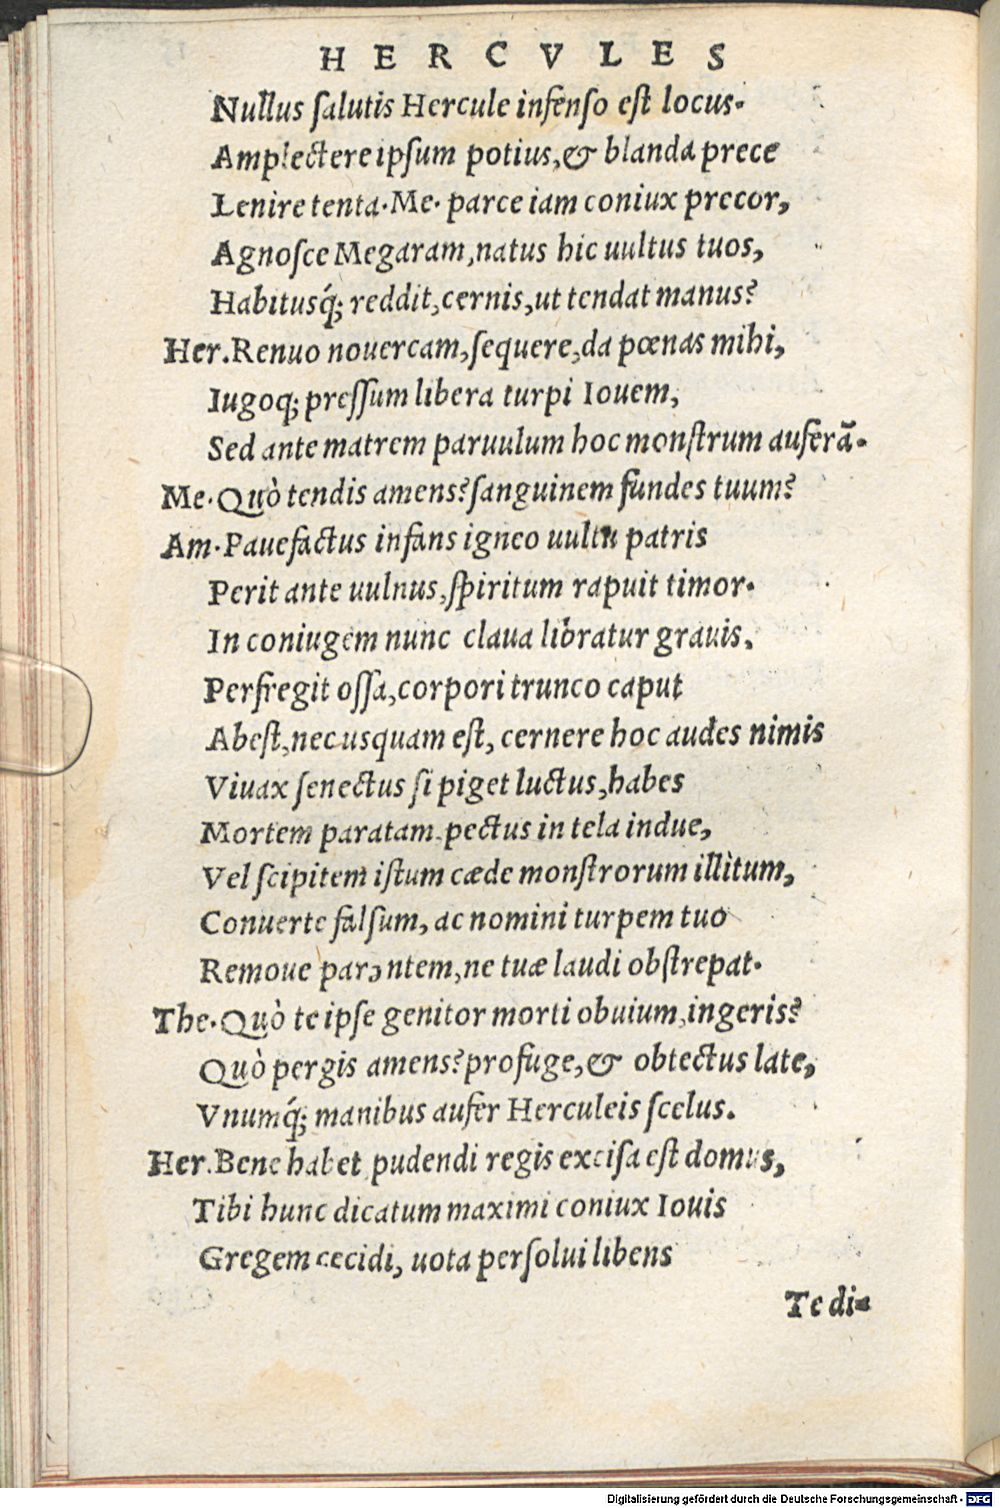 HERCVLES
Nullus ſalutis Hercule infenſo eſt locus.
Amplectere ipſum potius, & blanda prece
Lenire tenta. Me. parce iam coniux precor,
Agnoſce Megaram, natus hic uultus tuos,
Habitusq́; reddit, cernis, ut tendat manus?
Her. Renuo nouercam, ſequere, da pœnas mihi,
Iugoq; preſſum libera turpi Iouem,
Sed ante matrem paruulum hoc monſtrum auferā.
Me. Quò tendis amens? ſanguinem fundes tuum?
Am. Pauefactus infans igneo uultu patris
Perit ante uulnus, ſpiritum rapuit timor.
In coniugem nunc claua libratur grauis.
Perfregit oſſa, corpori trunco caput
Abeſt, nec usquam eſt, cernere hoc audes nimis
Viuax ſenectus ſi piget luctus, habes
Mortem paratam. pectus in tela indue,
Vel ſcipitem iſtum cæde monſtrorum illitum,
Conuerte falſum, ac nomini turpem tuo
Remoue parentem, ne tuæ laudi obſtrepat.
The. Quò te ipſe genitor morti obuium, ingeris?
Quò pergis amens? profuge, & obtectus late,
Vnumq́; manibus aufer Herculeis ſcelus.
Her. Bene habet pudendi regis exciſa eſt domus,
Tibi hunc dicatum maximi coniux Iouis
Gregem cecidi, uota perſolui libens
Te di=
Digitalisierung gefördert durch die Deutsche Forschungsgemeinschaft - DFG